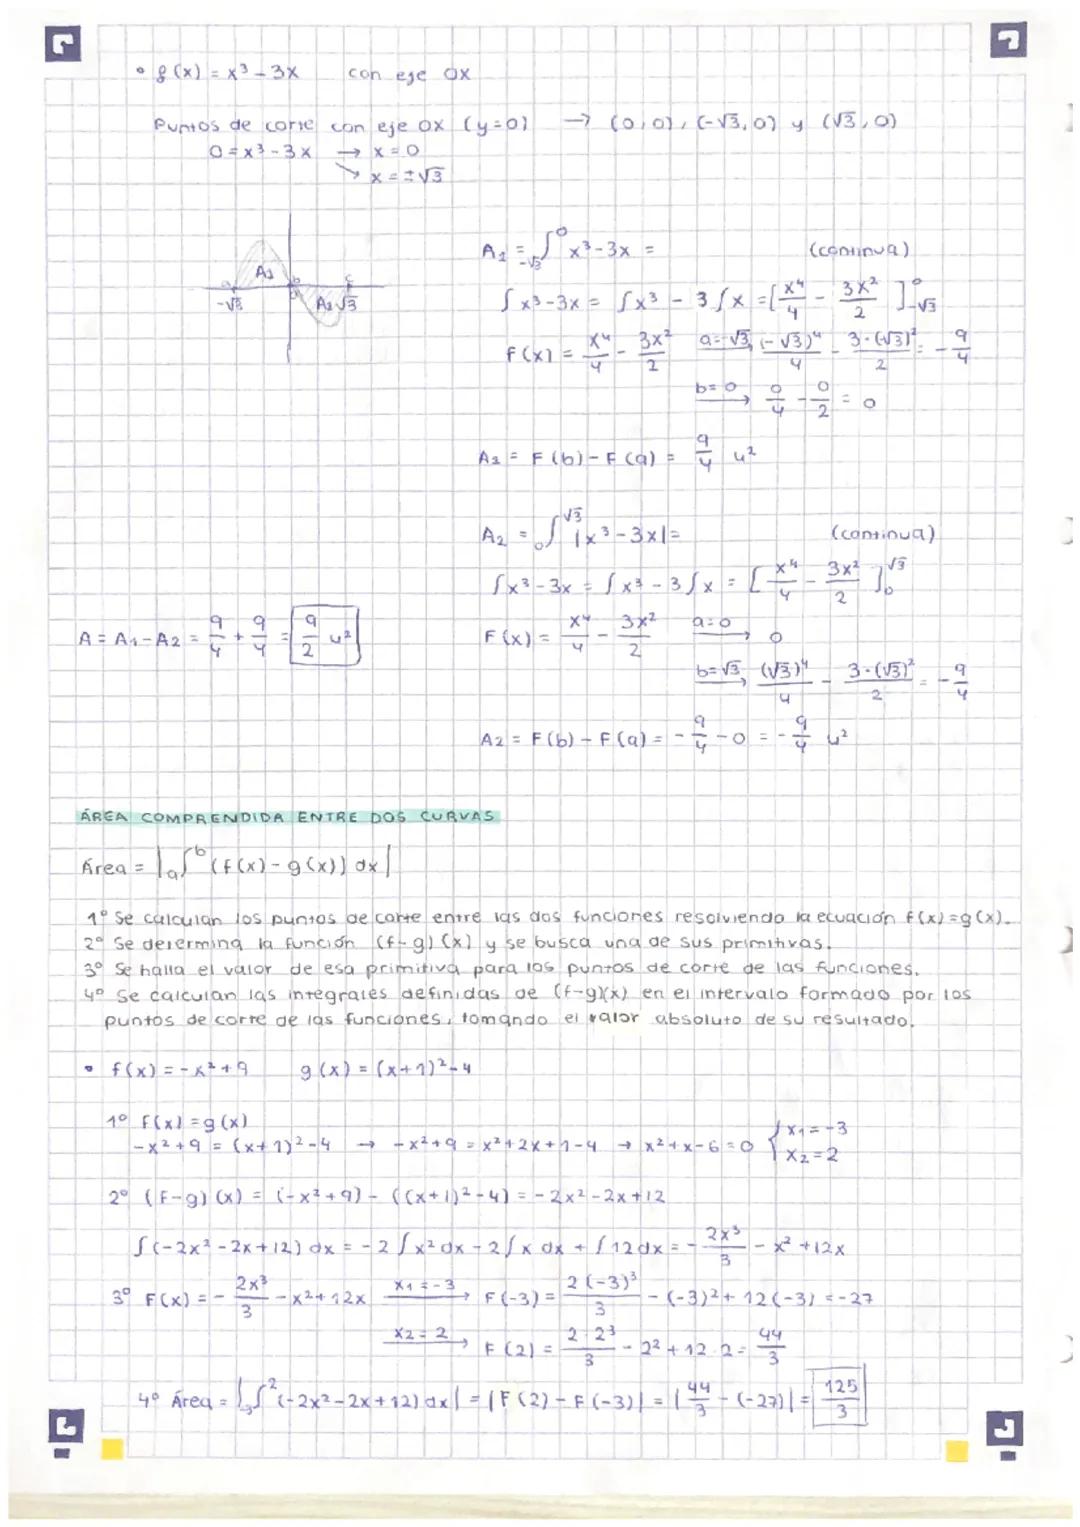 • f(x) = x³ - 3x con eje OX
Puntos de corte con eje OX (y=0) → (0,0), (-√3,0) y (√3,0)
0 = x³ - 3x → x = 0
↘ x = ±√3
A₁ = ∫₋√3⁰ x³ - 3x = (continua)
∫x³ - 3x = ∫x³ - 3∫x = [x⁴/4 - 3x²/2]₋√3⁰
F(x) = x⁴/4 - 3x²/2 a=-√3, (-√3)⁴/4 - 3·(-√3)²/2 = -9/4
b=0 → 0/4 - 0/2 = 0
A₁ = F(b) - F(a) = 9/4 u²
a A₁ b c
-√3 0 A₂ √3
A₂ = ₀∫√3 |x³ - 3x| = (continua)
∫x³ - 3x = ∫x³ - 3∫x = [x⁴/4 - 3x²/2]₀√3
F(x) = x⁴/4 - 3x²/2 a=0 → 0
b=√3, (√3)⁴/4 - 3·(√3)²/2 = -9/4
A₂ = F(b) - F(a) = -9/4 - 0 = -9/4 u²
A = A₁ - A₂ = 9/4 + 9/4 = 9/2 u²
ÁREA COMPRENDIDA ENTRE DOS CURVAS
Área = |ₐ∫ᵇ (f(x) - g(x)) dx|
1º Se calculan los puntos de corte entre las dos funciones resolviendo la ecuación f(x)=g(x).
2º Se determina la función (f-g)(x) y se busca una de sus primitivas.
3º Se halla el valor de esa primitiva para los puntos de corte de las funciones.
4º Se calculan las integrales definidas de (f-g)(x) en el intervalo formado por los
puntos de corte de las funciones, tomando el valor absoluto de su resultado.
• f(x) = -x² + 9 g(x) = (x+1)² - 4
1º F(x) = g(x)
-x² + 9 = (x+1)² - 4 → -x² + 9 = x² + 2x + 1 - 4 → x² + x - 6 = 0 { x₁ = -3
x₂ = 2
2º (F-g)(x) = (-x² + 9) - ((x+1)² - 4) = -2x² - 2x + 12
∫(-2x² - 2x + 12) dx = -2∫x² dx - 2∫x dx + ∫12 dx = -2x³/3 - x² + 12x
3º F(x) = -2x³/3 - x² + 12x x₁ = -3 → F(-3) = 2(-3)³/3 - (-3)² + 12(-3) = -27
x₂ = 2 → F(2) = 2·2³/3 - 2² + 12·2 = 44/3
4º Área = |₋₃∫² (-2x² - 2x + 12) dx| = |F(2) - F(-3)| = |44/3 - (-27)| = 125/3